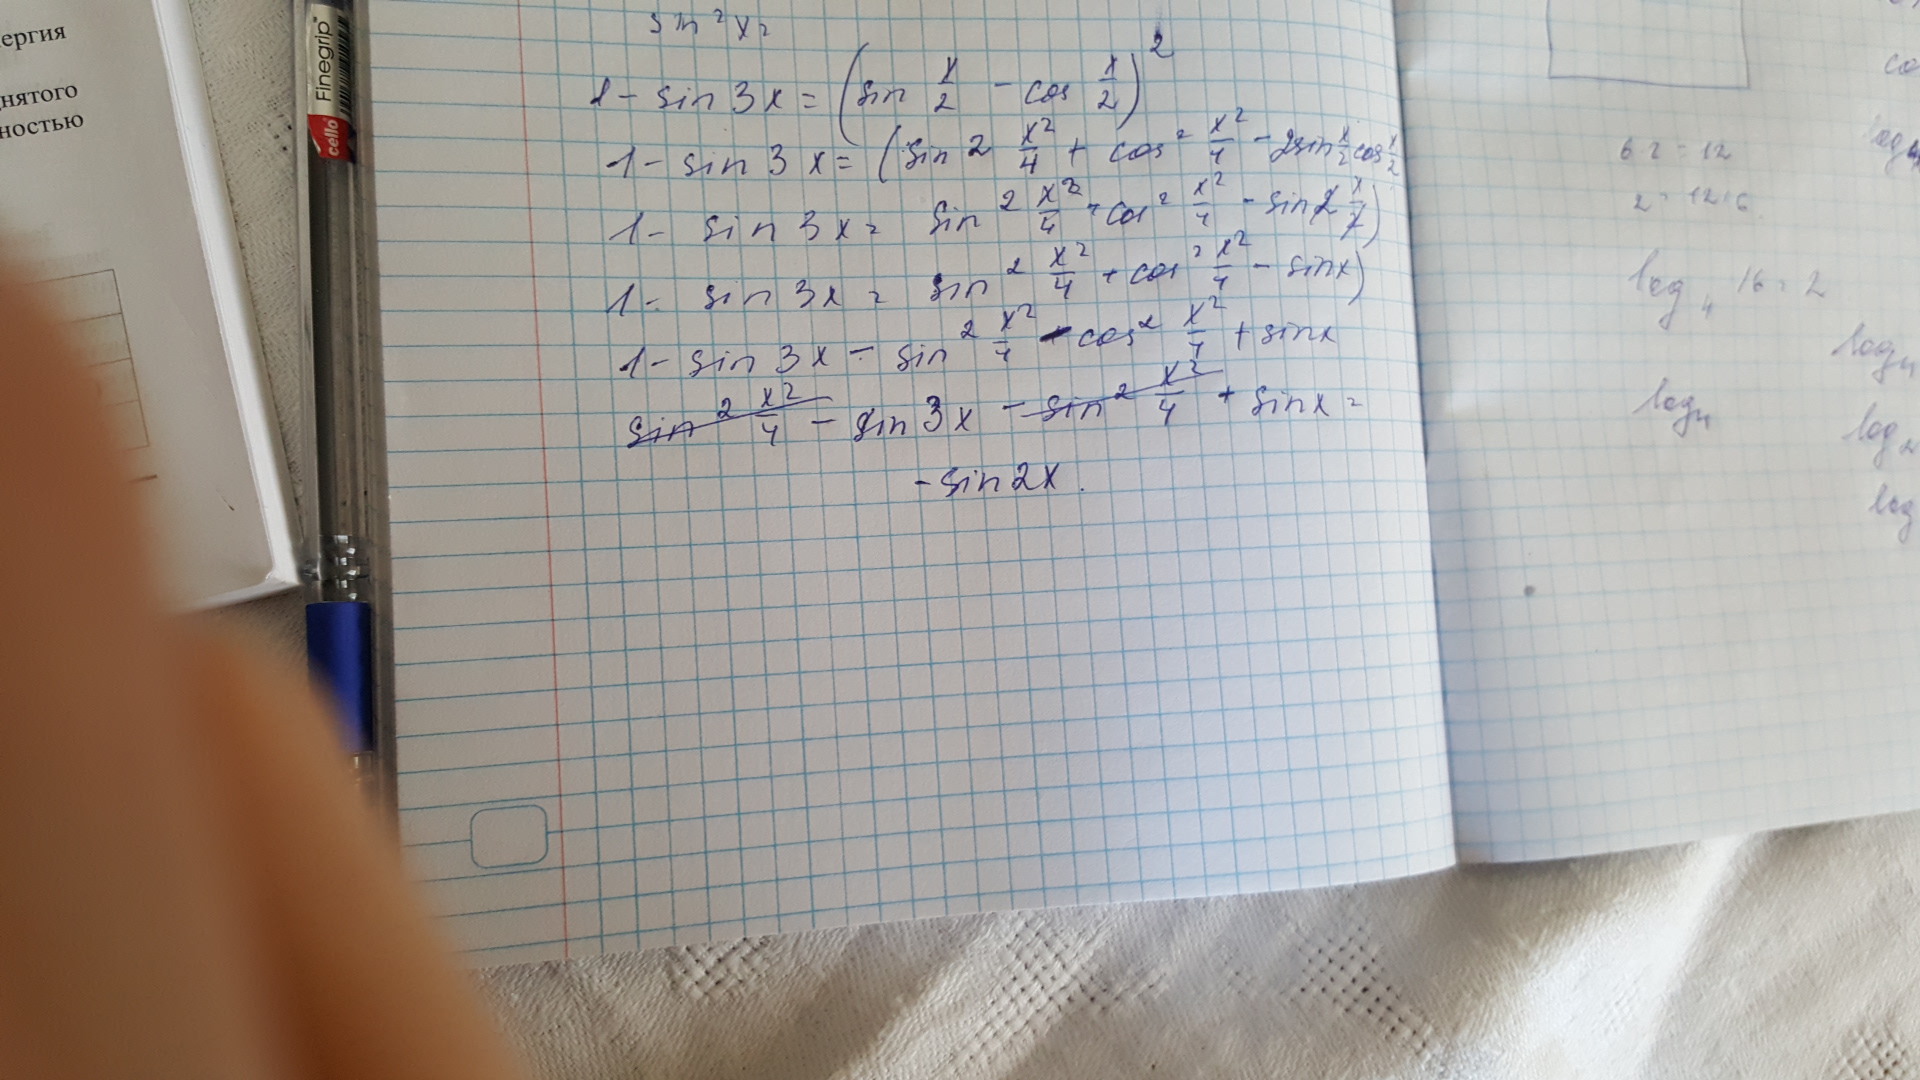 ергия
нятого
ностью
Finegrip
cello
sin²x=
1 - sin 3x = (sin x/2 - cos x/2)²
1 - sin 3x = (sin 2 x²/4 + cos² x²/4 - 2sin x/2 cos x/2
1 - sin 3x = sin² x²/4 + cos² x²/4 - sin2 x/2)
1 - sin 3x = sin² x²/4 + cos² x²/4 - sinx)
1 - sin 3x - sin² x²/4 - cos² x²/4 + sinx
sin² x²/4 - sin 3x - sin² x²/4 + sinx =
- sin 2x.
6 2 = 12
2 = 12:6
log₄ 16 = 2
log₄
log₄
log
log